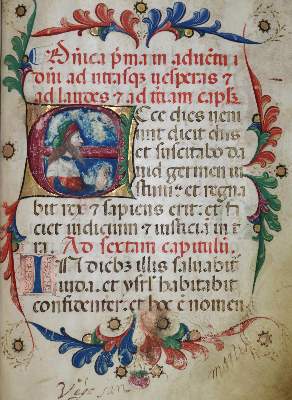 Dñica pͥma in aduentu
dñi ad utrasqꝫ uesperas ⁊
ad laudes ⁊ ad iiiam capl'ꝫ
Ecce dies ueni
unt dicit dñs
et suscitabo da
uid germen iu
stum: et regna
bit rex ⁊ sapiens erit: et fa
ciet iudicium ⁊ iusticiā in t̄
ra. Ad sextam capitulū.
IN dieb' illis saluabit'
iuda. et ysrl' habitabit
confidenter. et hoc ē nomen